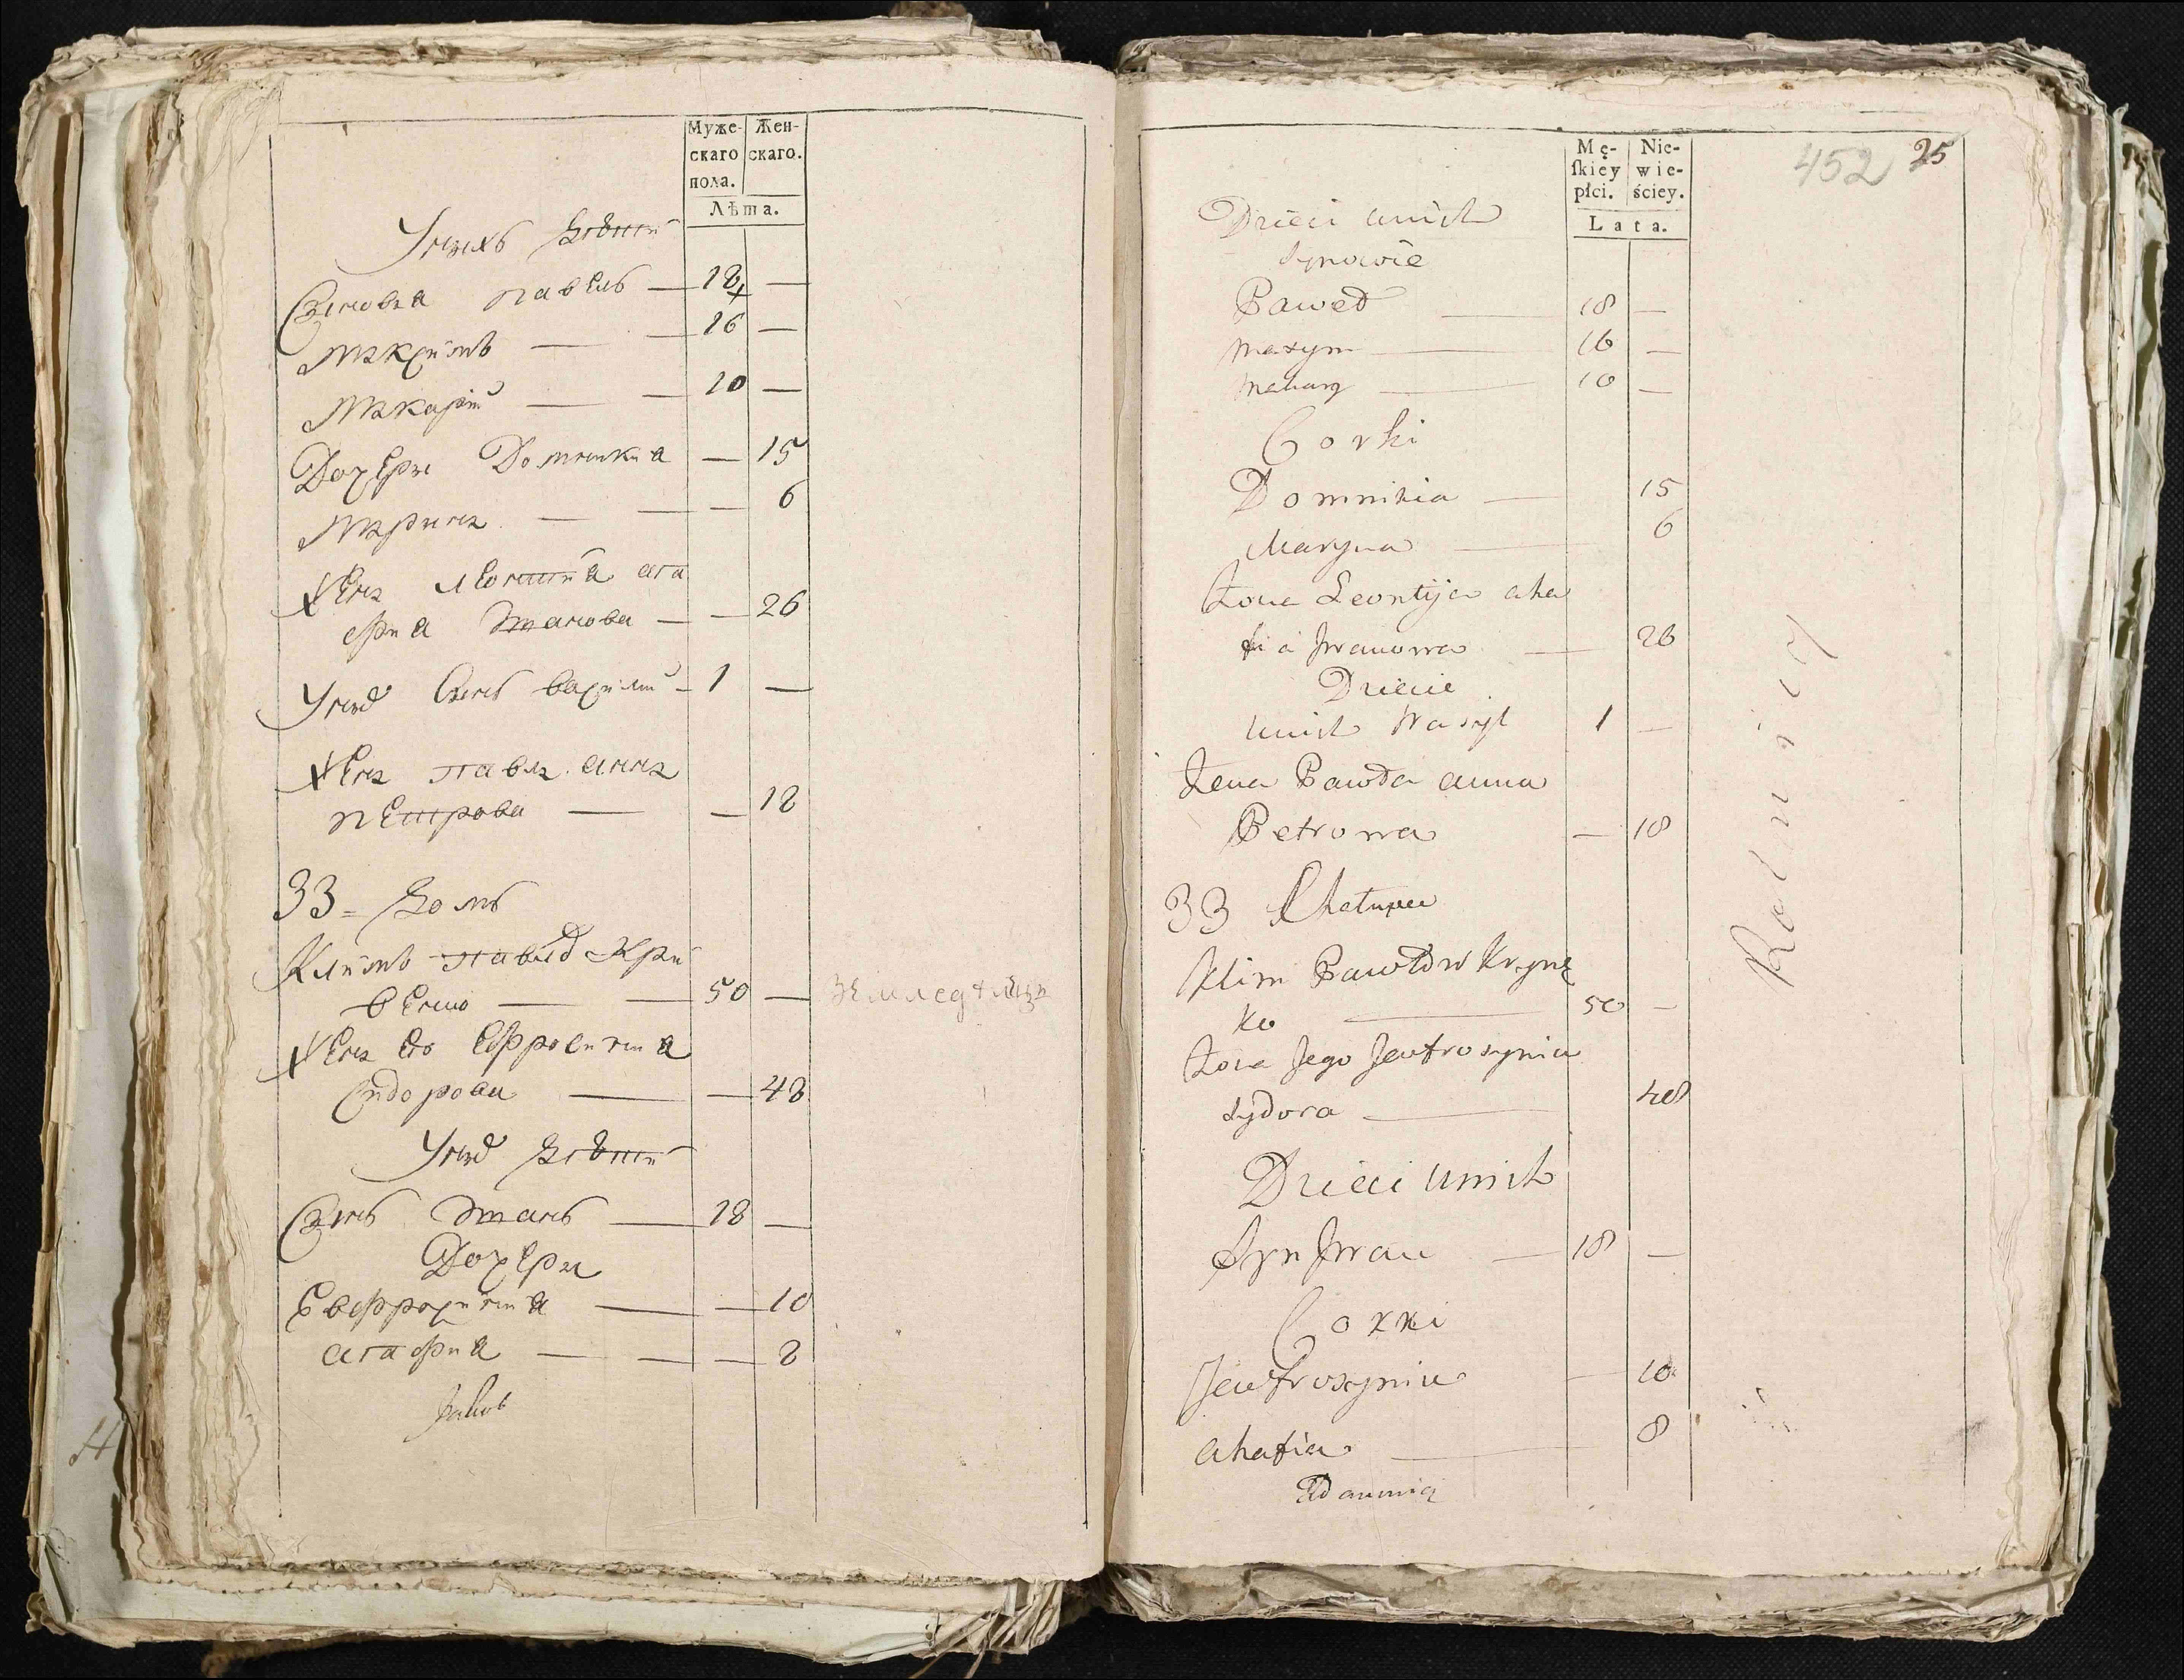 Муже- Жен-
скаго скаго.
пола.
Лѣта.
Унихъ дѣти
Сыновя павелъ — 18 —
Максимъ — — 16 —
Макарій — — 10 —
Дочери Домникиа — 15
Марина — — — 6
Жена Леонтия ага
фиа Иванова — — 26
Унио Сынъ василий — 1 —
Жена павла анна
петрова — — 18
33 = домъ
Климъ павлов Кри
венко — — 50 — земледѣлцы
Жена его Ефросиниа
Сидорова — — 48
Уних дѣти
Сынъ Иванъ — 18 —
Дочери
Евфросиния — — 10
агафиа — — — 8
Jakob
452 25
Mę- Nie-
ſkiey wie-
płci. ściey.
Lata.
Dzieci unich
Synowie
Paweł — 18 —
Maxym — 16 —
Makary — 10 —
Corki
Domnikia — 15
Maryna — 6
Żona Leontija aha
fia Jwanowa — 26
Dziecie
unich Wasyl 1 —
Żena Pawła anna
Petrowa — 18
33 Chałupa
Klim Pawłow Krywę
ko — 50 —
Żona Jego Jewfrosynia
Sydora — 48
Dzieci unich
Syn Jwan — 18 —
Corki
Jewfrosynia — 10
ahafia — 8
Rolnicy